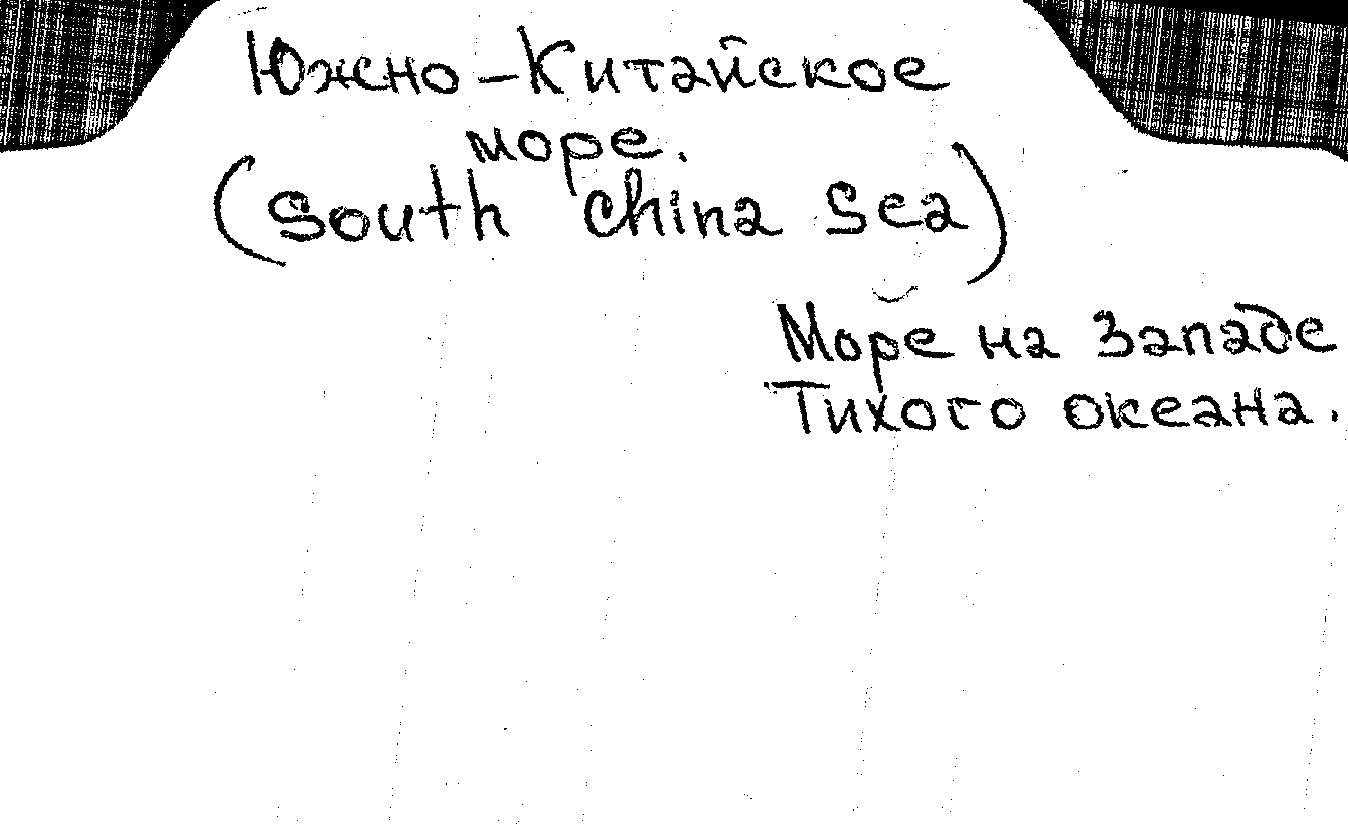 Южно-Китайское
море.
(South China Sea)
Море на западе
Тихого океана.